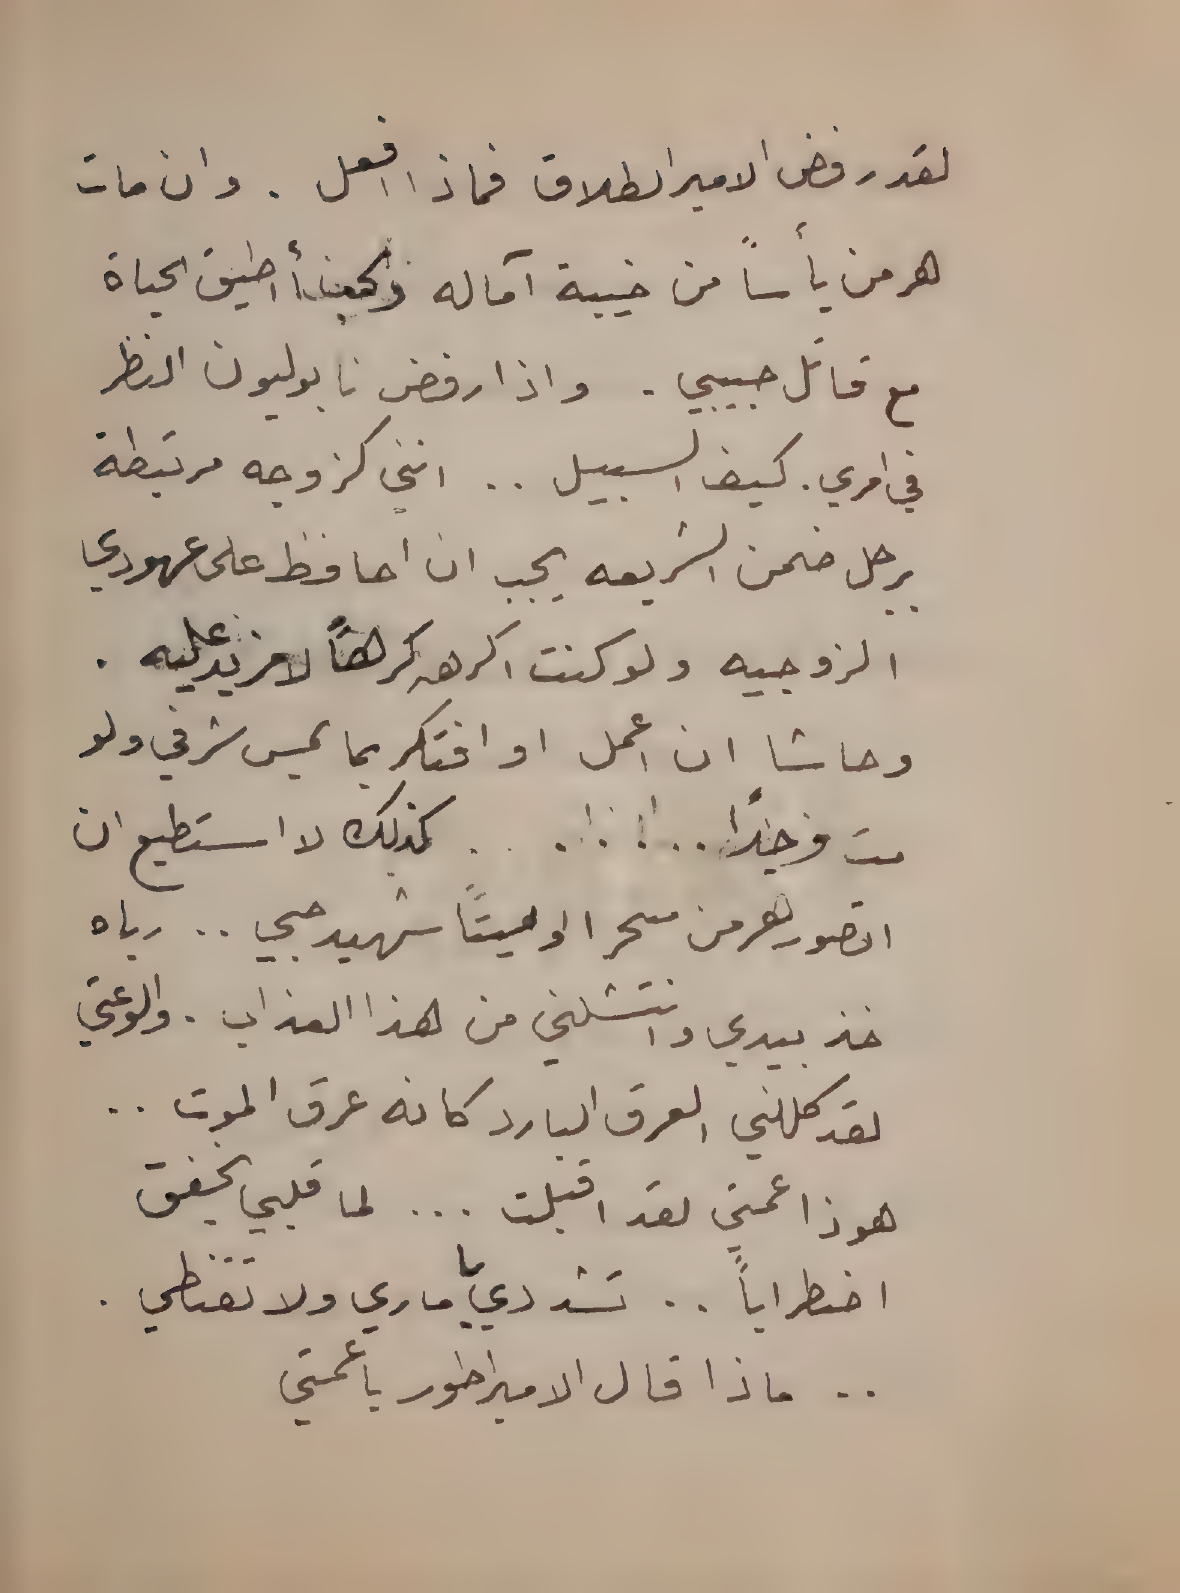 لقد رفض الامير الطلاق فماذا افعل . وان مات
هرمن يأساً من خيبة آماله فكيف أطيق الحياة
مع قاتل حبيبي . واذا رفض نابوليون النظر
في امري . كيف السبيل .. انني كزوجه مرتبطة
برجل ضمن الشريعه يجب ان احافظ على عهودي
الزوجيه ولو كنت اكرهه كرهاً لا مزيد عليه .
وحاشا ان اعمل او افتكر بما يمس شرفي ولو
مت .. كذلك لا استطيع ان
اتصور هرمن او ميتاً شهيد حبي .. رباه
خذ بيدي وانتشلني من هذا العذاب . والوعتي
لقد كللني العرق البارد كانه عرق الموت ..
هوذا عمتي لقد اقبلت ... لما قلبي يخفق
اضطراباً .. تشددي يا ماري ولا تقنطي .
.. ماذا قال الامبراطور يا عمتي